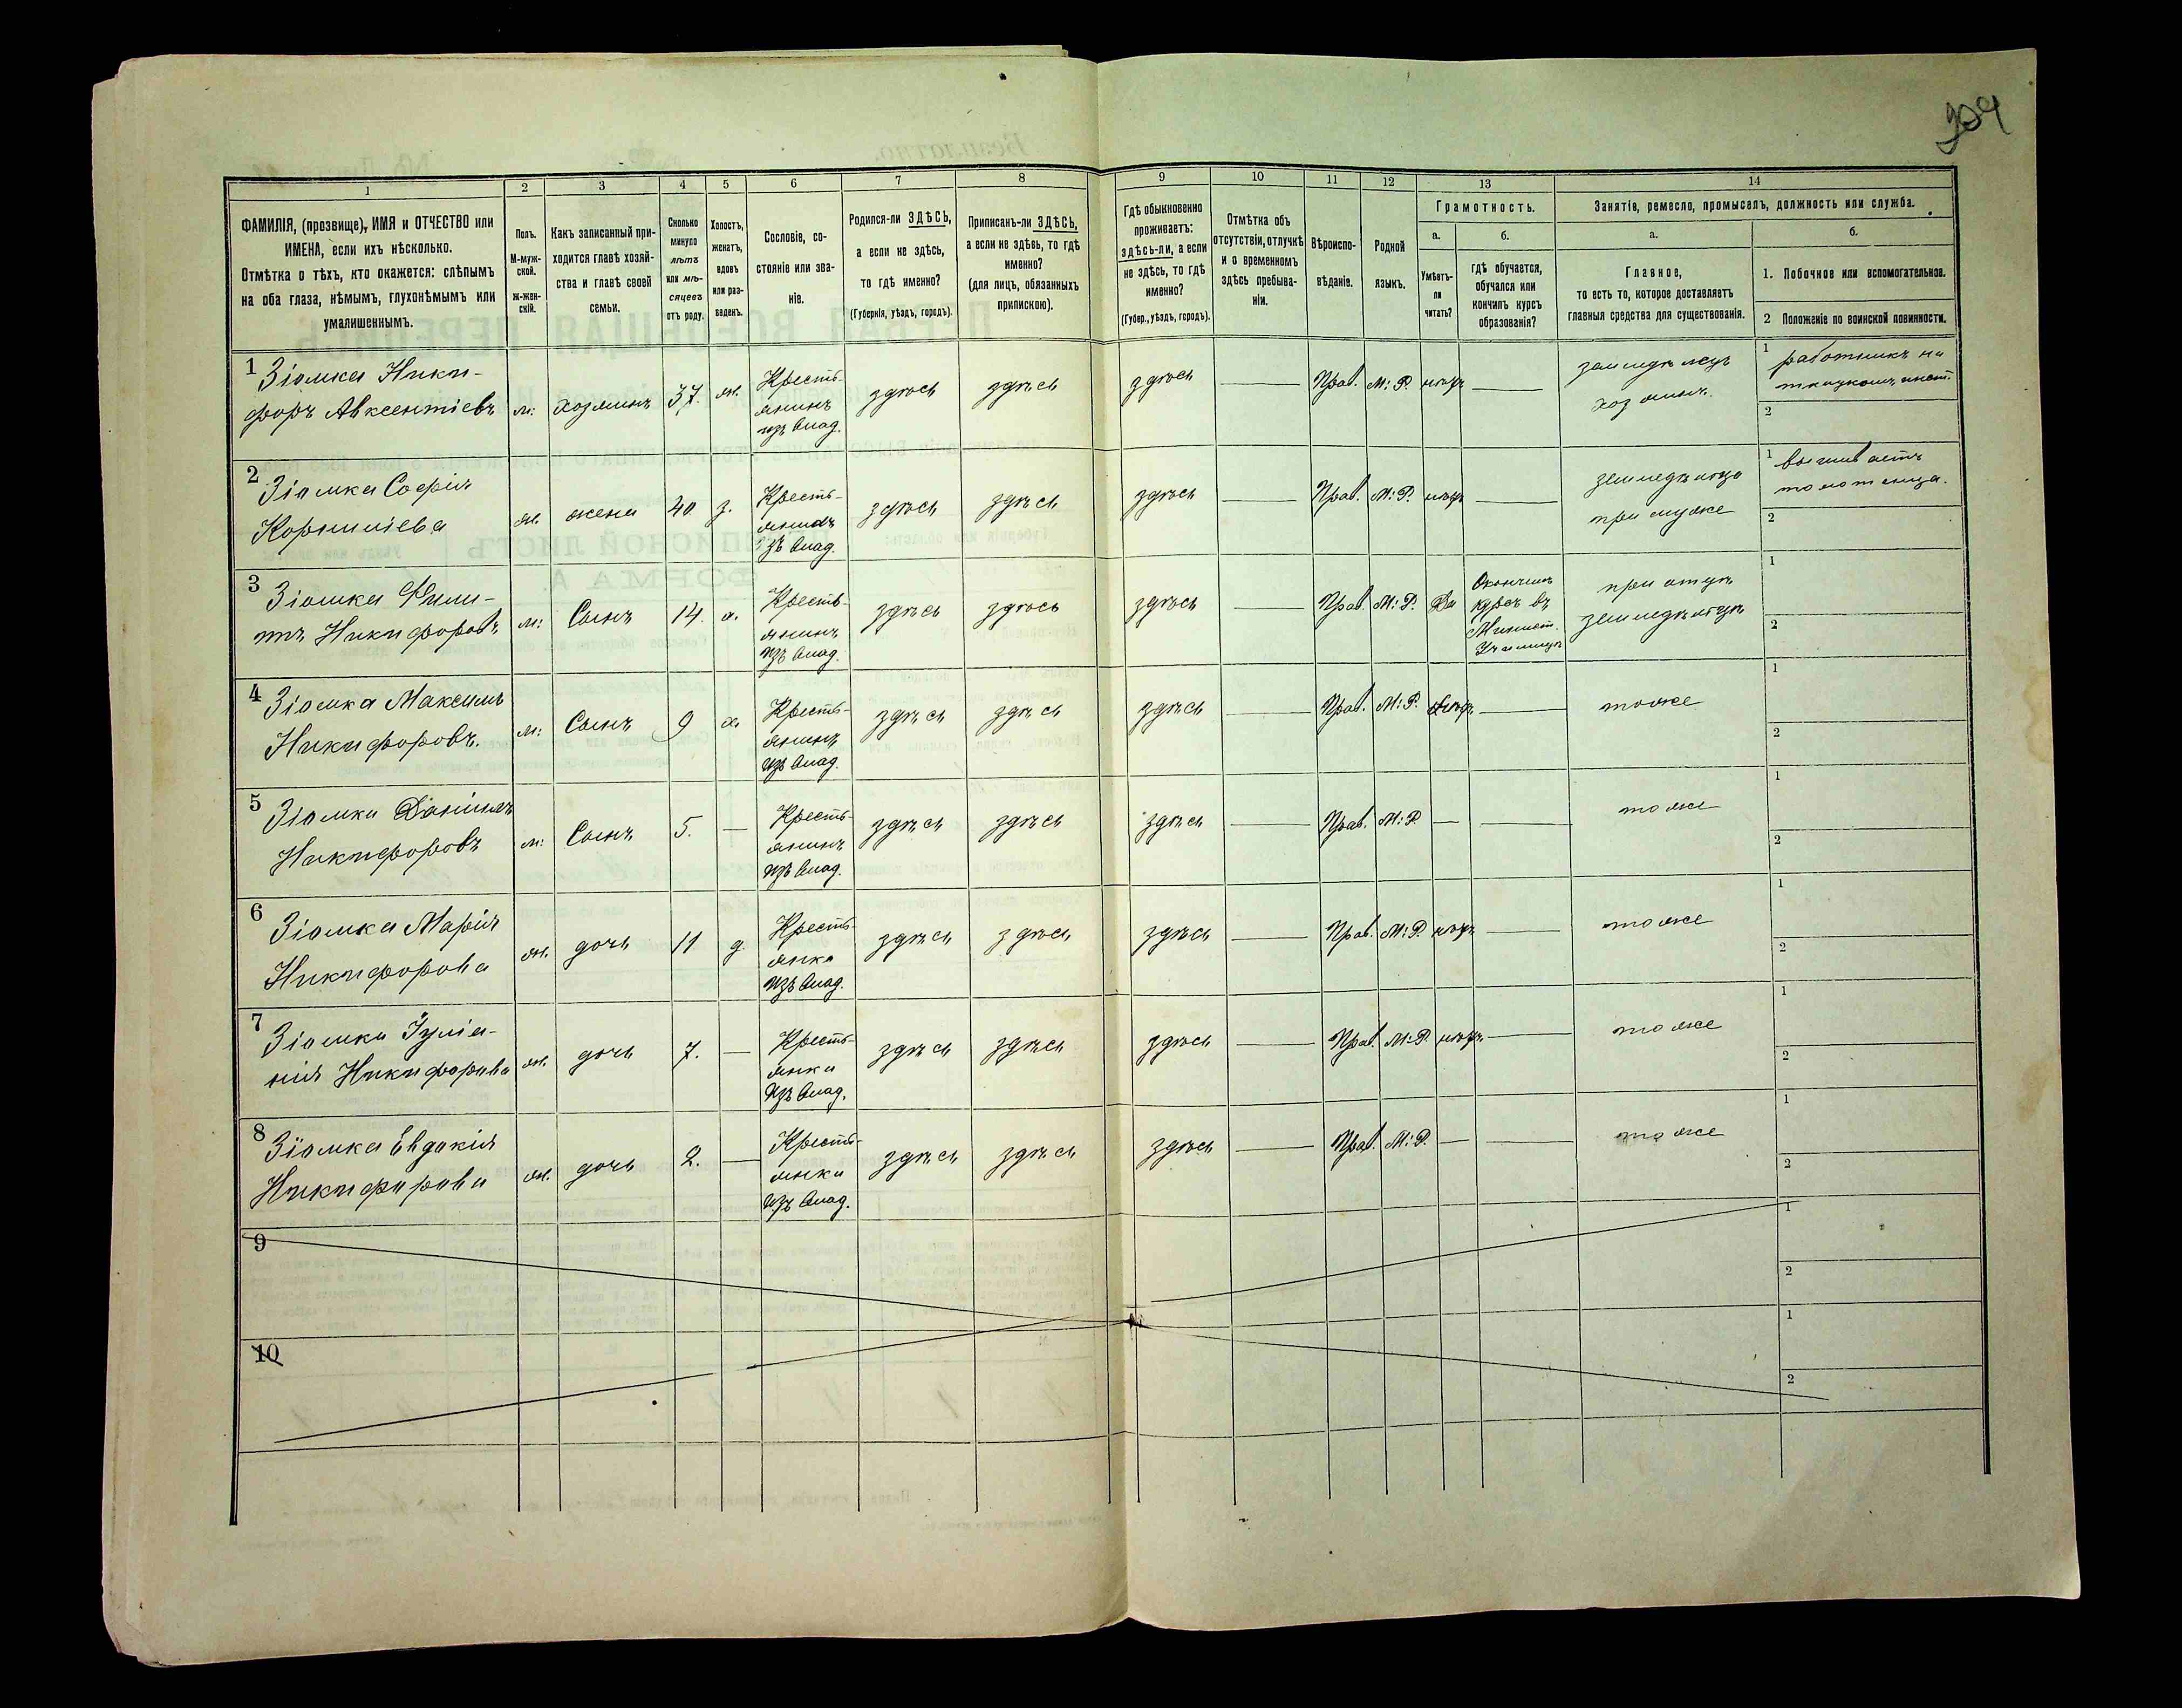 904
1
2
3
4
5
6
7
8
9
10
11
12
13
14
ФАМИЛІЯ, (прозвище), ИМЯ и ОТЧЕСТВО или
ИМЕНА, если ихъ нѣсколько.
Отмѣтка о тѣхъ, кто окажется: слѣпымъ
на оба глаза, нѣмымъ, глухонѣмымъ или
умалишеннымъ.
Полъ.
М-муж-
ской.
ж-жен-
скій.
Какъ записанный при-
ходится главѣ хозяй-
ства и главѣ своей
семьи.
Сколько
минуло
лѣтъ
или мѣ-
сяцевъ
отъ роду.
Холостъ,
женатъ,
вдовъ
или раз-
веденъ.
Сословіе, со-
стояніе или зва-
ніе.
Родился-ли ЗДѢСЬ,
а если не здѣсь,
то гдѣ именно?
(Губернія, уѣздъ, городъ).
Приписанъ-ли ЗДѢСЬ,
а если не здѣсь, то гдѣ
именно?
(для лицъ, обязанныхъ
припискою).
Гдѣ обыкновенно
проживаетъ:
здѣсь-ли, а если
не здѣсь, то гдѣ
именно?
(Губер., уѣздъ, городъ).
Отмѣтка объ
отсутствіи, отлучкѣ
и о временномъ
здѣсь пребыва-
ніи.
Вѣроиспо-
вѣданіе.
Родной
языкъ.
Грамотность.
а.
Умѣетъ-
ли
читать?
б.
гдѣ обучается,
обучался или
кончилъ курсъ
образованія?
Занятіе, ремесло, промыселъ, должность или служба.
а.
Главное,
то есть то, которое доставляетъ
главныя средства для существованія.
б.
1. Побочное или вспомогательное.
2 Положеніе по воинской повинности.
1 Зіомка Ники-
форъ Авксентіевъ
м:
хозяинъ
37.
ж.
Кресть-
янинъ
изъ влад.
здѣсь
здѣсь
здѣсь
Прав.
М: Р.
нѣтъ
земледѣлецъ
хозяинъ.
1 работникъ на
2
2 Зіомка Софія
Корниліева
ж.
жена
40
з.
Кресть-
изъ влад.
здѣсь
здѣсь
здѣсь
Прав.
М: Р.
нѣтъ
при мужѣ
1 вышиваетъ
полотенца.
2
3 Зіомка Фили-
пъ Никифоровъ
м:
Сынъ
14.
х.
Кресть-
янинъ
изъ влад.
здѣсь
здѣсь
здѣсь
Прав.
М: Р.
Да
Окончилъ
курсъ въ
Минист.
Училищѣ
при отцѣ
земледѣльцѣ
1
2
4 Зіомка Максимъ
Никифоровъ.
м:
Сынъ
9
х.
Кресть-
янинъ
изъ влад.
здѣсь
здѣсь
здѣсь
Прав.
М: Р.
нѣтъ
тоже
1
2
5 Зіомка Даніилъ
Никифоровъ
м:
Сынъ
5.
Кресть-
янинъ
изъ влад.
здѣсь
здѣсь
здѣсь
Прав.
М: Р.
тоже
1
2
6 Зіомка Марія
Никифорова
ж.
дочь
11
д.
Кресть-
янка
изъ влад.
здѣсь
здѣсь
здѣсь
Прав.
М: Р.
нѣтъ
тоже
1
2
7 Зіомка Іуліа-
нія Никифорова
ж.
дочь
7.
Кресть-
янка
изъ влад.
здѣсь
здѣсь
здѣсь
Прав.
М: Р.
нѣтъ
тоже
1
2
8 Зіомка Евдокія
Никифорова
ж.
дочь
2.
Кресть-
янка
изъ влад.
здѣсь
здѣсь
здѣсь
Прав.
М: Р.
тоже
1
2
9
1
2
10
1
2